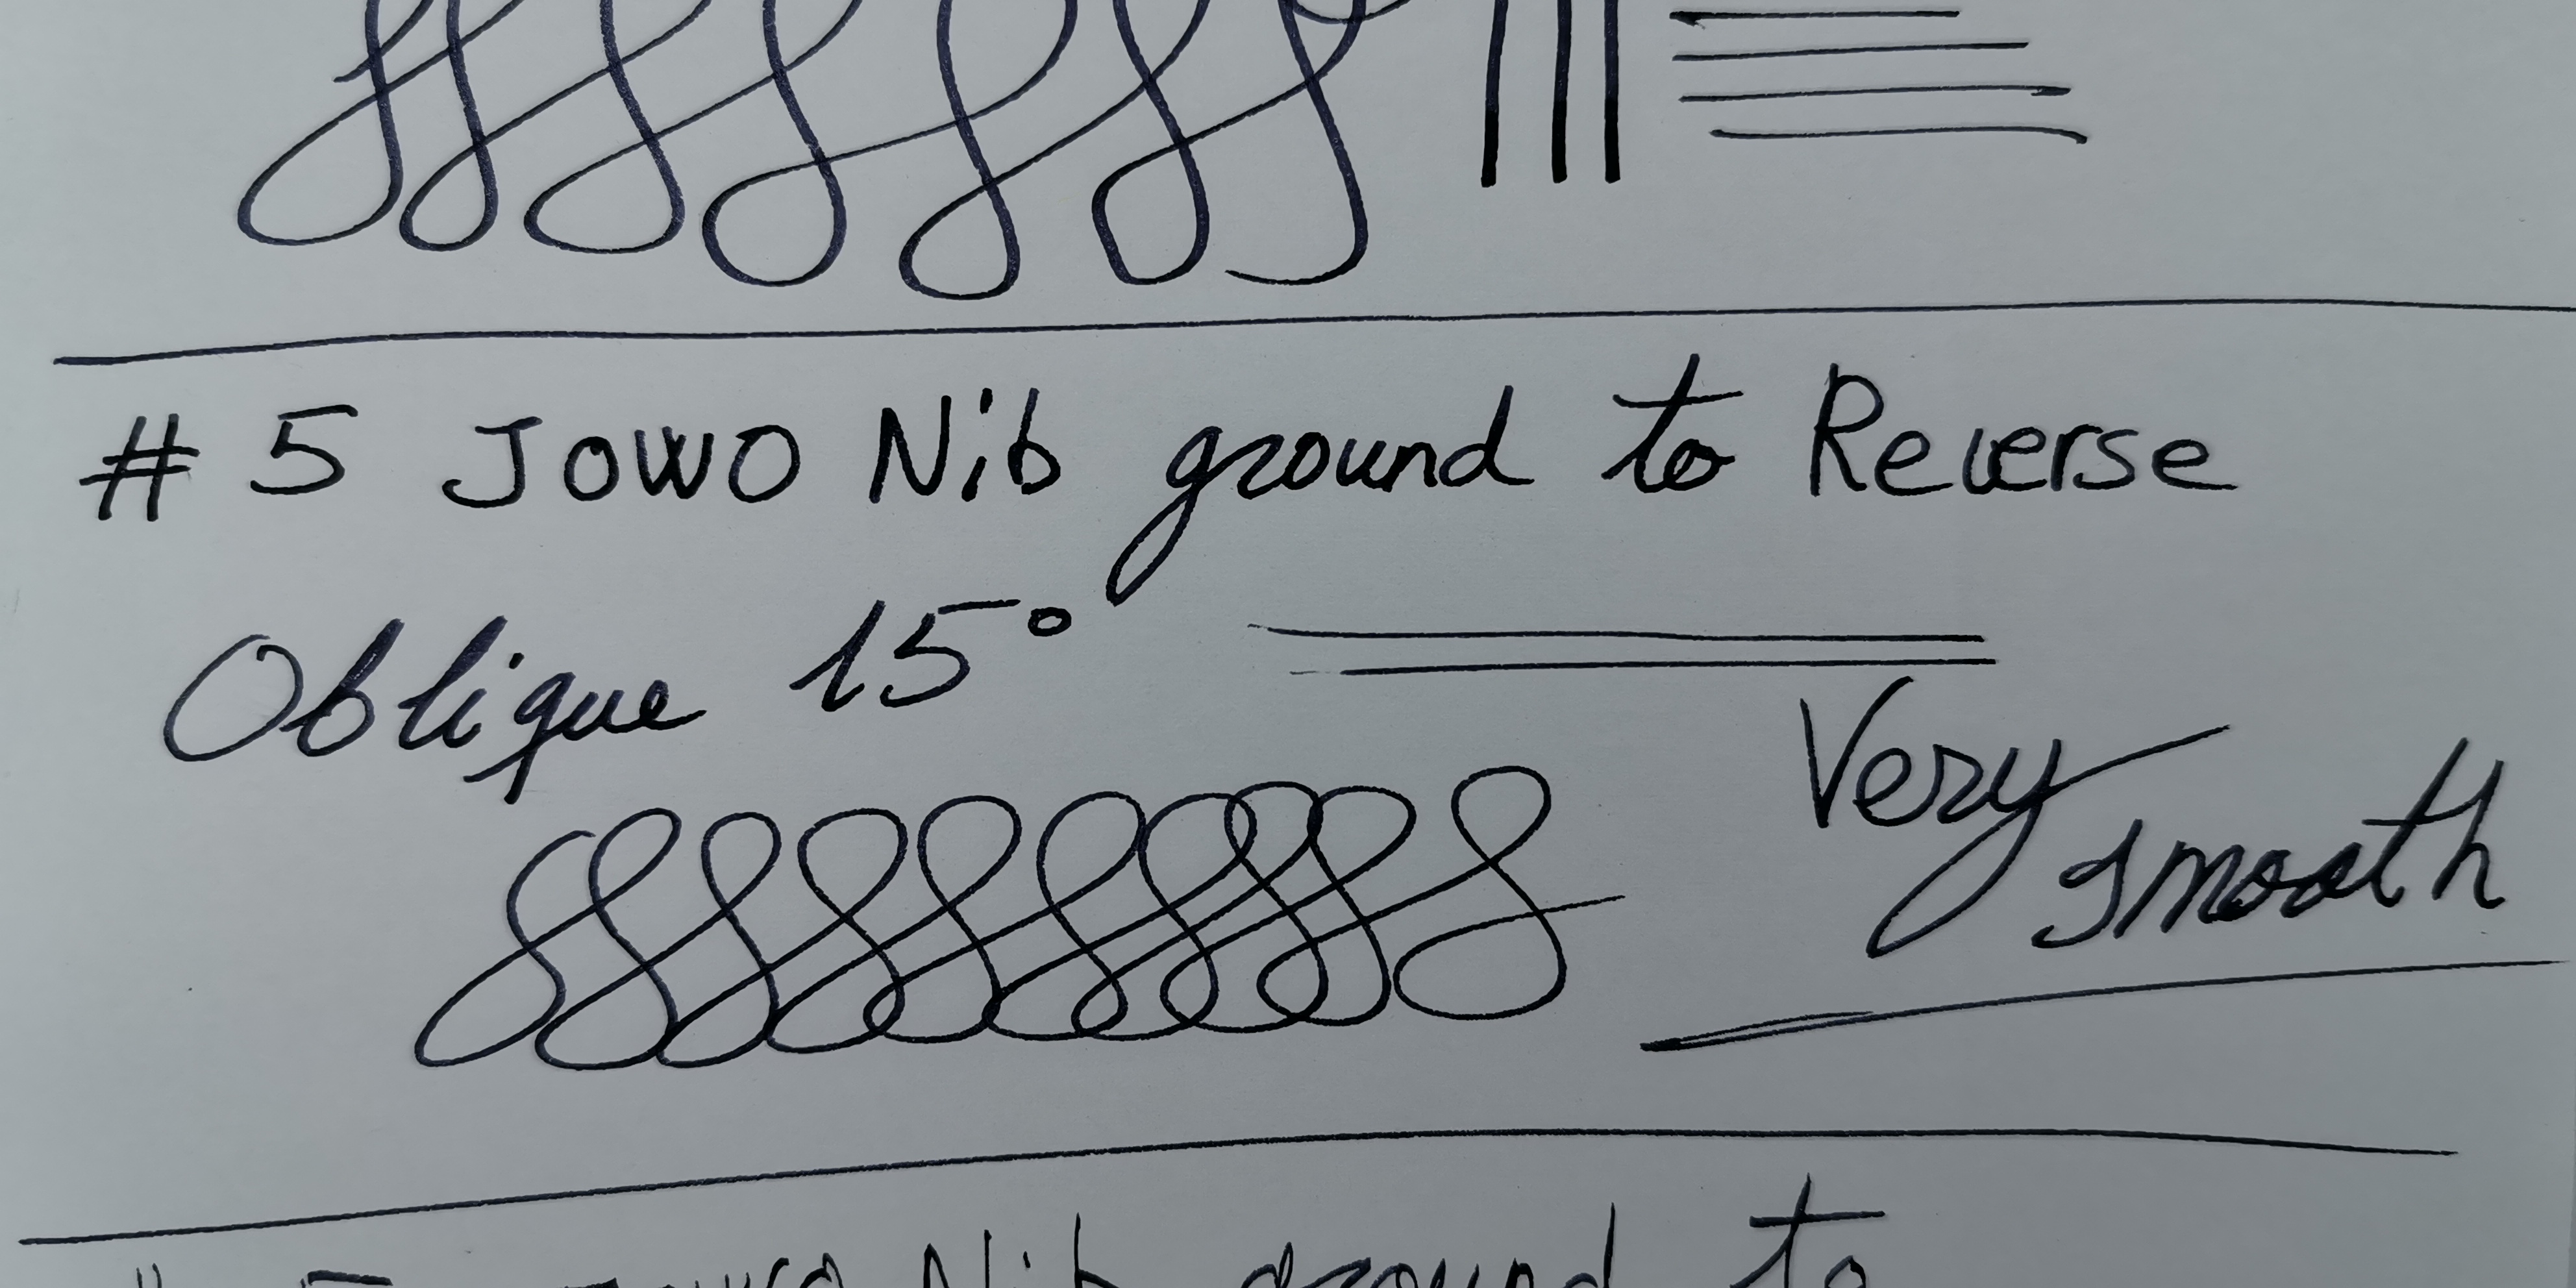 # 5 Jowo Nib ground to Reverse
Oblique 15°
Very
smooth
# 5 Jowo Nib ground to